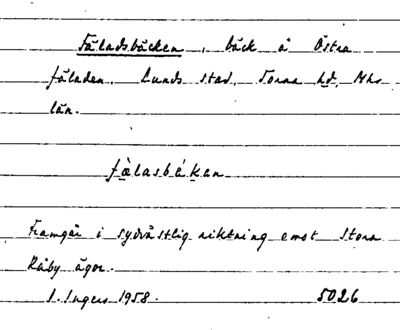 Fäladsbäcken, bäck å Östra
fäladen, Lunds stad, Torna hd, Mhs
län.
fàlasbékan
Framgår i sydvästlig riktning emot Stora
Råby ägor.
I. Ingers 1958. 5026